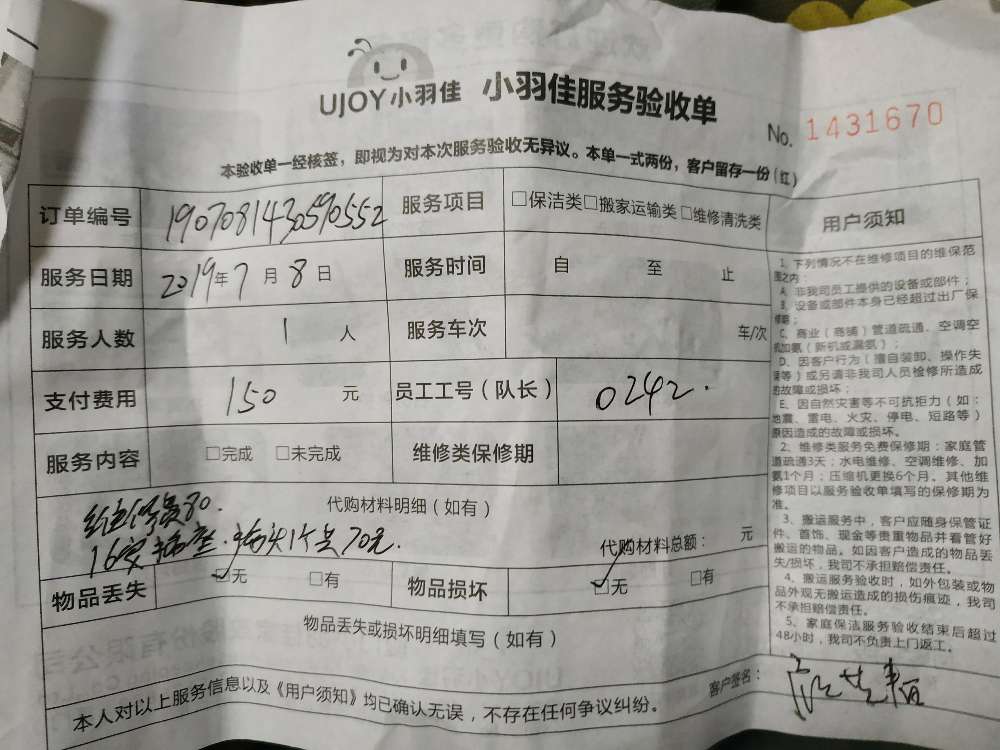 UJOY小羽佳 小羽佳服务验收单
No. 1431670
本验收单一经核签，即视为对本次服务验收无异议。本单一式两份，客户留存一份（红）
订单编号 1907081430590552 服务项目 □保洁类□搬家运输类□维修清洗类
服务日期 2019年7月8日 服务时间 自 至 止
服务人数 1人 服务车次 车/次
支付费用 150 元 员工工号（队长） 0242.
服务内容 □完成 □未完成 维修类保修期
代购材料明细（如有）
16安插座.插头1个共70元.
代购材料总额： 元
物品丢失 ☑无 □有 物品损坏 ☑无 □有
物品丢失或损坏明细填写（如有）
本人对以上服务信息以及《用户须知》均已确认无误，不存在任何争议纠纷。
客户签名：
用户须知
1、下列情况不在维修项目的维保范
围之内：
A、非我司员工提供的设备或部件；
B、设备或部件本身已经超过出厂保
修期；
C、商业（商铺）管道疏通、空调空
机加氨（新机或漏氨）；
D、因客户行为（擅自装卸、操作失
误等）或另请非我司人员检修所造成
的故障或损坏；
E、因自然灾害等不可抗拒力（如：
地震、雷电、火灾、停电、短路等）
原因造成的故障或损坏。
2、维修类服务免费保修期：家庭管
道疏通3天；水电维修、空调维修、加
氨1个月；压缩机更换6个月。其他维
修项目以服务验收单填写的保修期为
准。
3、搬运服务中，客户应随身保管证
件、首饰、现金等贵重物品并看管好
搬运的物品。如因客户造成的物品丢
失/损坏，我司不承担赔偿责任。
4、搬运服务验收时，如外包装或物
品外观无搬运造成的损伤痕迹，我司
不承担赔偿责任。
5、家庭保洁服务验收结束后超过
48小时，我司不负责上门返工。